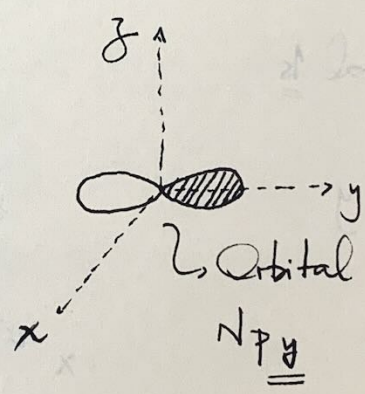 z
y
x
Orbital
Npy